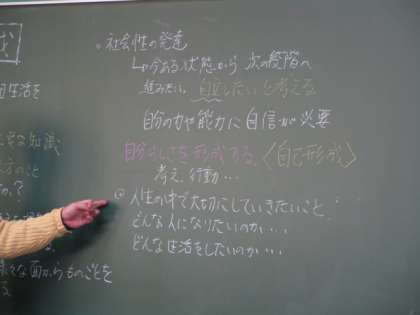 成
。社会性の発達
↳今ある状態から 次の段階へ
進みたい。自立したいと考える
自分の力や能力に自信が必要
自分らしさを形成する。〈自己形成〉
考え、行動…
生活を
知識
方のこと
の?
人生の中で大切にしていきたいこと:
どんな人になりたいのか…
どんな生活をしたいのか…
な面からものごとを
る